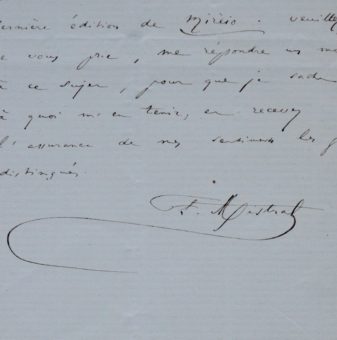 dernière édition de Mirèio. veuillez
je vous prie, me répondre un mot
à ce sujet, pour que je sache
à quoi m'en tenir, et recevez
l'assurance de mes sentiments les
distingués.
F. Mistral